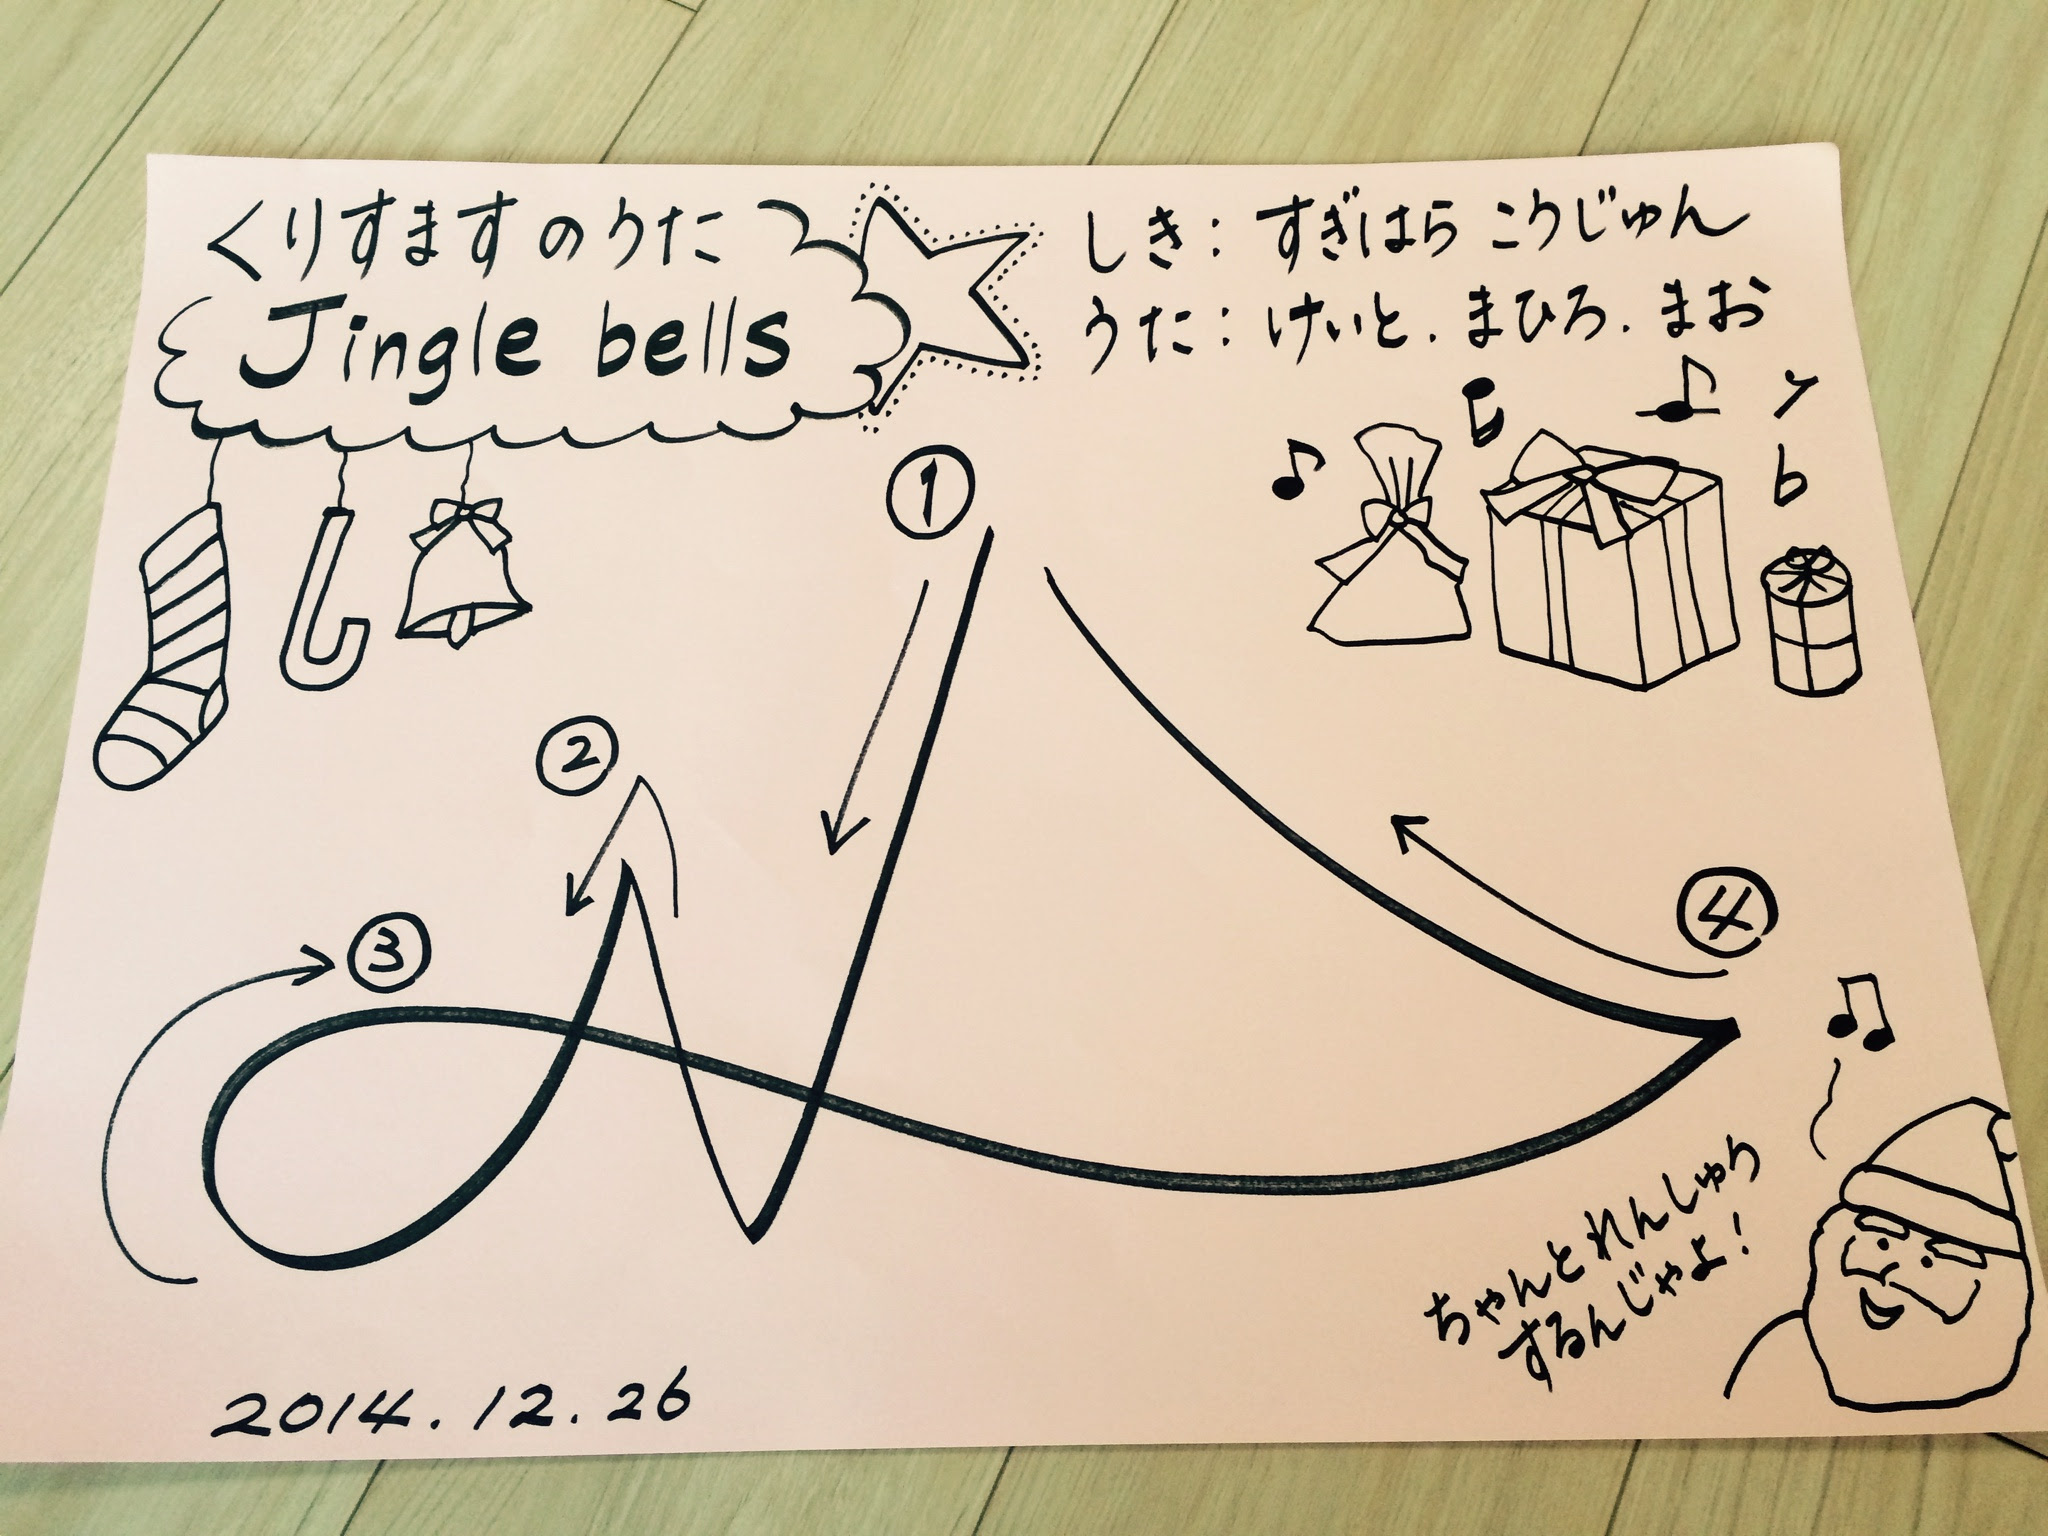 くりすますのうた
Jingle bells
しき：すぎはら こうじゅん
うた：けいと．まひろ．まお
①
②
③
④
ちゃんとれんしゅう
するんじゃよ！
2014.12.26